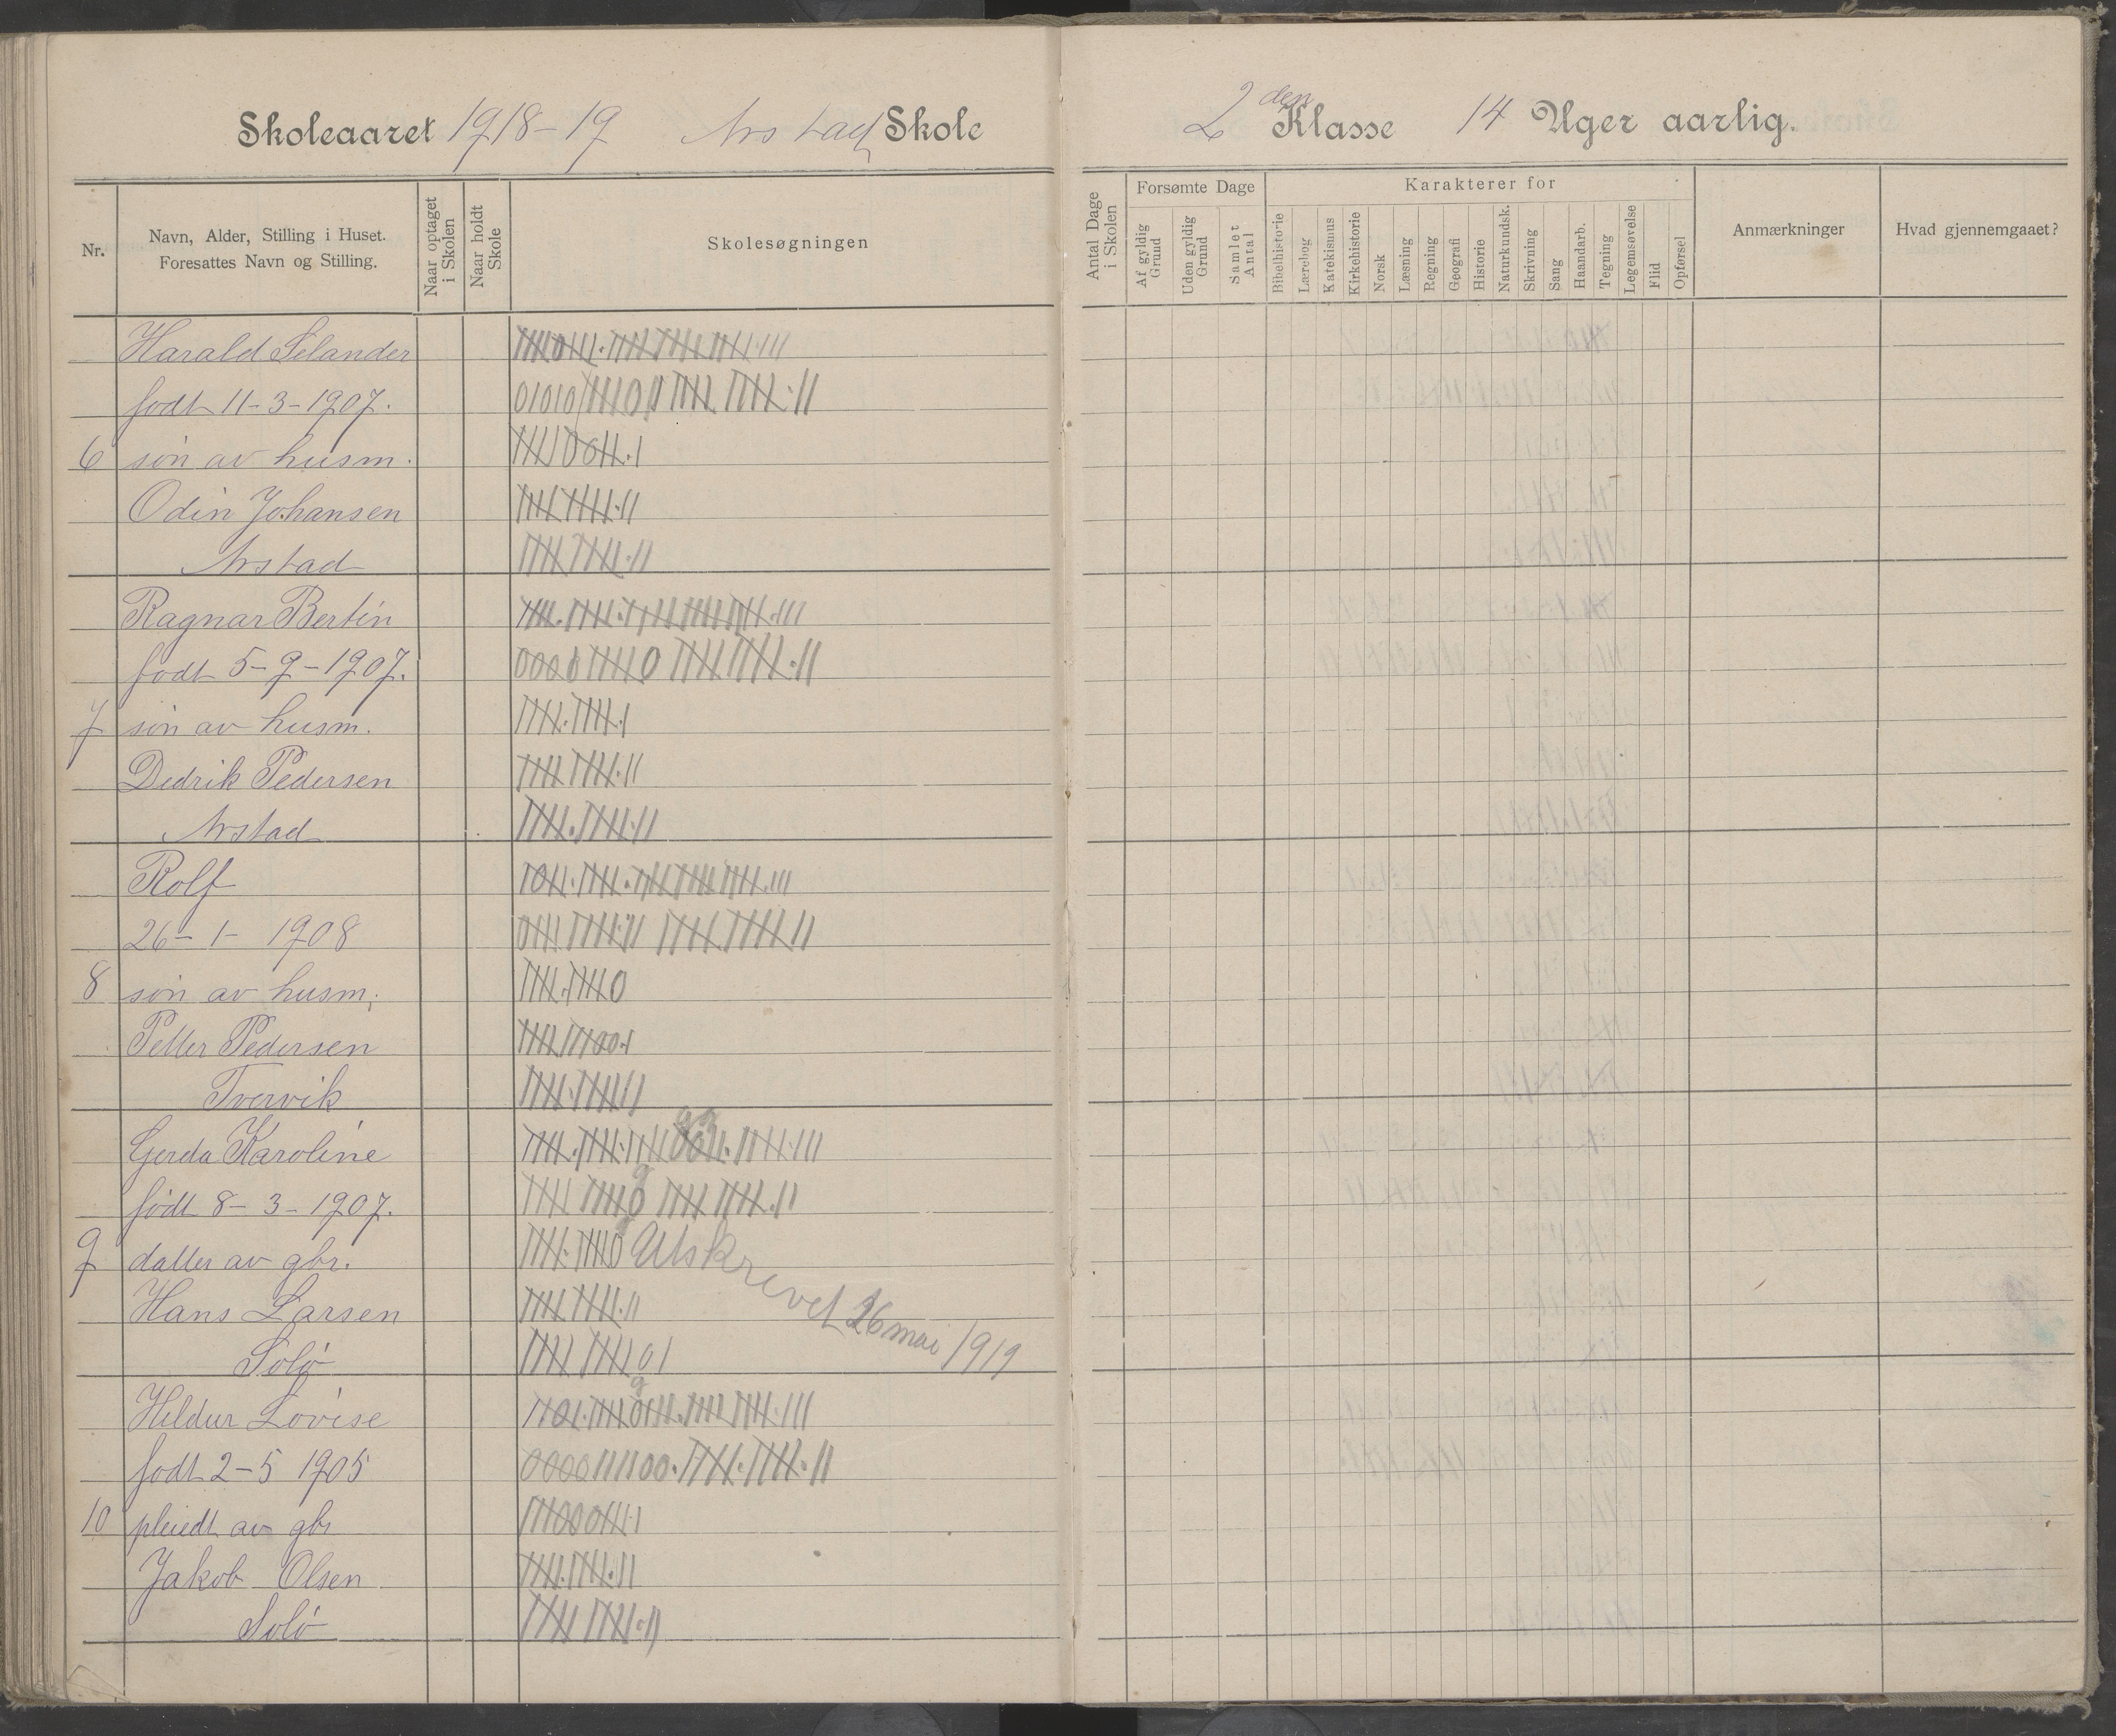 Skoleaaret 1918-19 Arstad Skole
2den Klasse 14 Uger aarlig.
Nr.
Navn, Alder, Stilling i Huset.
Foresattes Navn og Stilling.
Naar optaget
i Skolen
Naar holdt
Skole
Skolesøgningen
Antal Dage
i Skolen
Forsømte Dage
Af gyldig
Grund
Uden gyldig
Grund
Samlet
Antal
Karakterer for
Bibelhistorie
Lærebog
Katekismus
Kirkehistorie
Norsk
Læsning
Regning
Geografi
Historie
Naturkundsk.
Skrivning
Sang
Haandarb.
Tegning
Legemsøvelse
Flid
Opførsel
Anmærkninger
Hvad gjennemgaaet?
Harald Selander
født 11-3-1907.
6 søn av husm.
Odin Johansen
Arstad
Ragnar Bertin
født 5-9-1907.
7 søn av husm.
Dedrik Pedersen
Arstad
Rolf
26-1-1908
8 søn av husm.
Petter Pedersen
Tvervik
Gerda Karoline
født 8-3-1907.
9 datter av gbr.
Utskrevet 26 mai 1919
Hans Larsen
Solø
Hildur Lovise
født 2-5 1905
10 pleiedt av gbr
Jakob Olsen
Solø